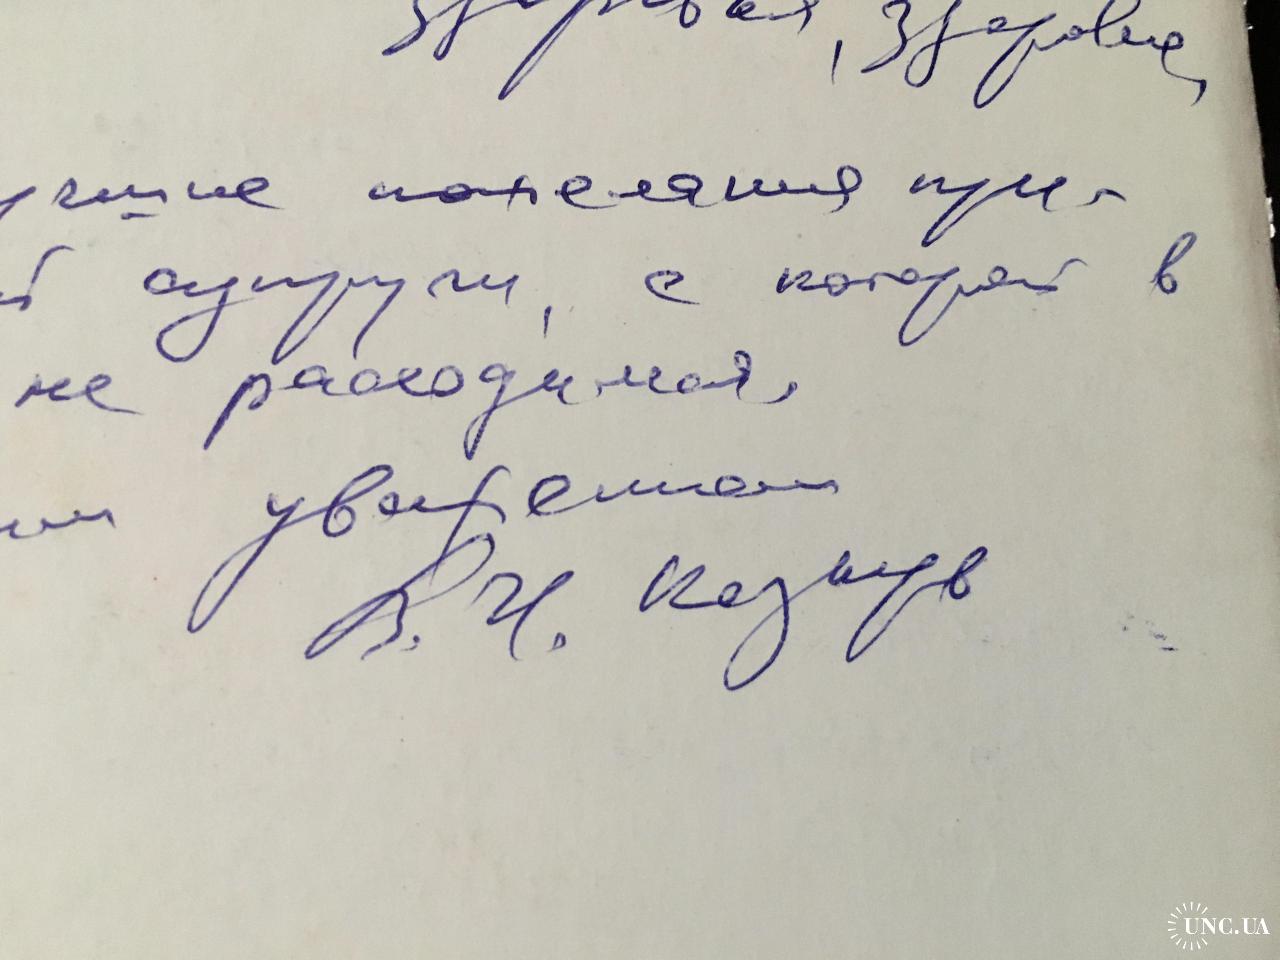 здоровья, здоровья,
учшие пожелания при-
й супруги, с которой в
не расходимся.
уважением
В. Н.
UNC.UA